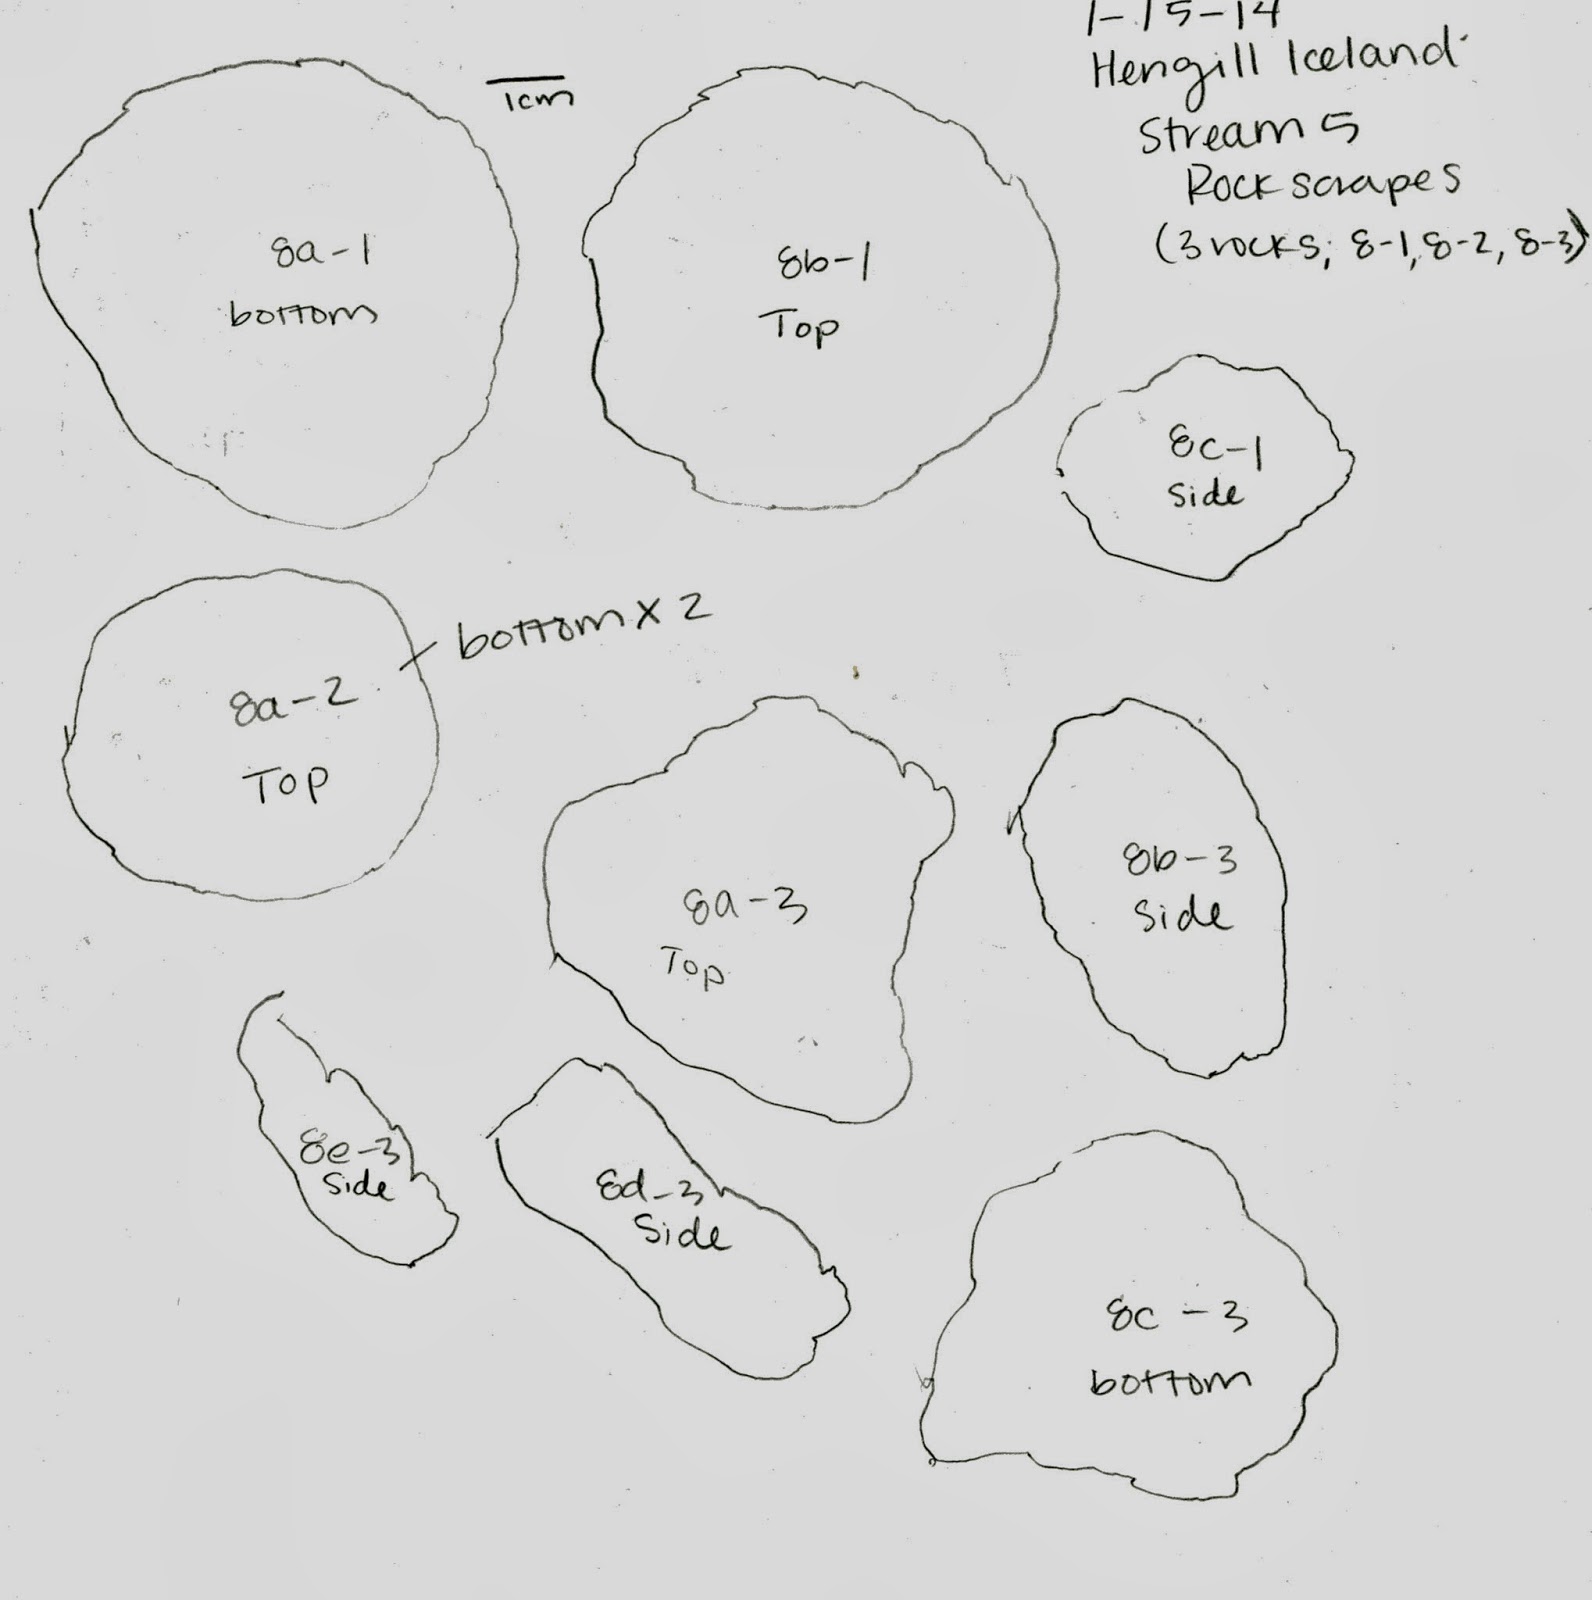 1-15-14
Hengill Iceland
Stream 5
Rock scrapes
(3 rocks; 8-1, 8-2, 8-3)
1cm
8a-1
bottom
8b-1
Top
8c-1
Side
bottom x 2
8a-2
Top
8a-3
Top
8b-3
Side
8e-3
Side
8d-3
Side
8c -3
bottom